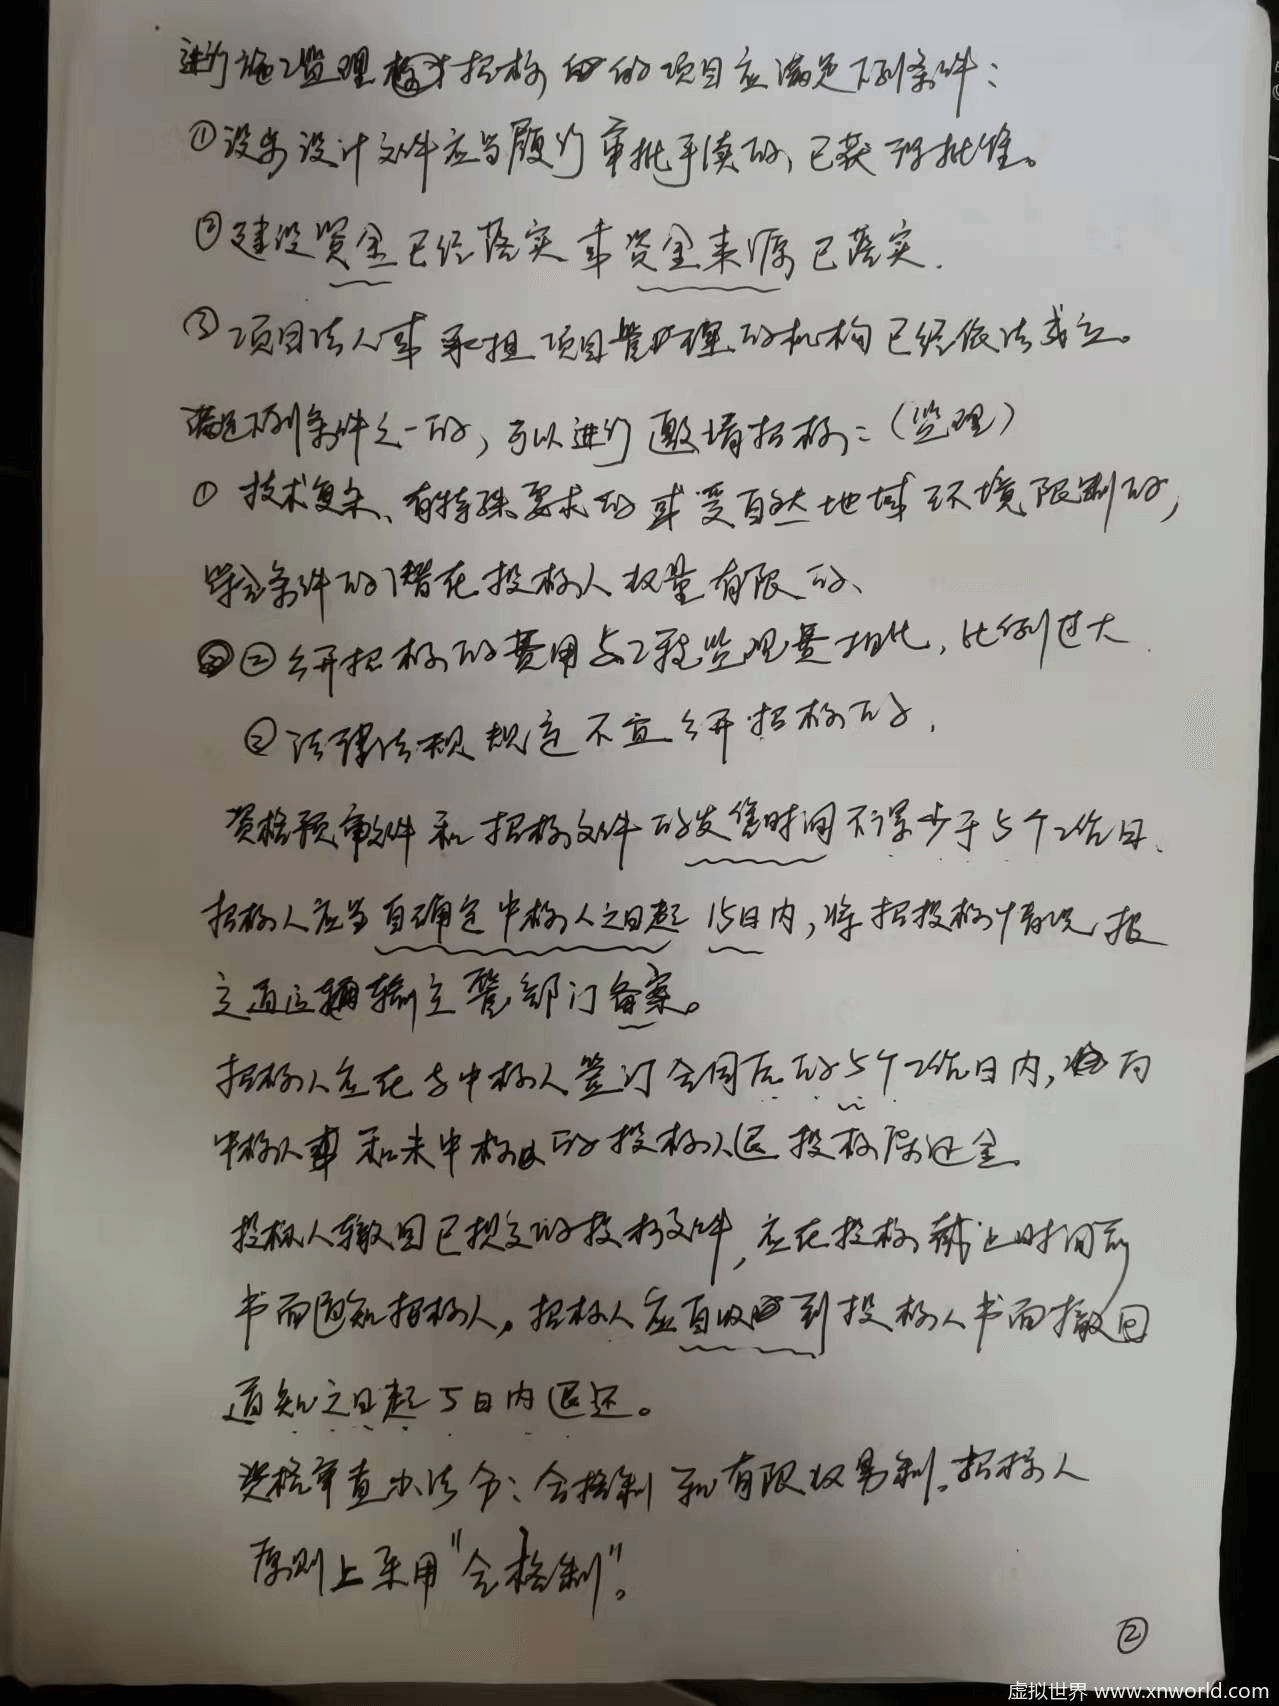 进行施工监理招标的项目应满足下列条件：
①设步设计文件应当履行审批手续的，已获得批准。
②建设资金已经落实或资金来源已落实.
③项目法人或承担项目管理的机构已经依法成立。
满足下列条件之一的，可以进行邀请招标：（监理）
① 技术复杂、有特殊要求的或受自然地域环境限制的，
符合条件的潜在投标人数量有限的、
②公开招标的费用与工程监理费相比，比例过大
②法律法规规定不宜公开招标的.
资格预审文件和招标文件的发售时间不得少于5个工作日、
招标人应当自确定中标人之日起15日内，将招投标情况报
交通运输主管部门备案。
招标人应在与中标人签订合同后的5个工作日内，向
中标人和未中标的投标人退投标保证金
投标人撤回已提交的投标文件，应在投标截止时间前
书面通知招标人。招标人应自收到投标人书面撤回
通知之日起5日内退还。
资格审查办法分：合格制和有限数量制。招标人
原则上采用"合格制"。
②
虚拟世界 www.xnworld.com